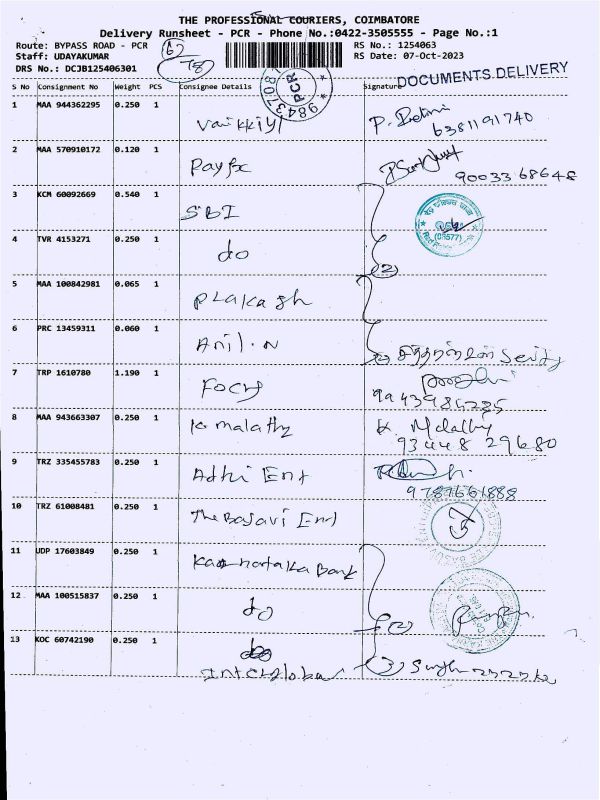 THE PROFESSIONAL COURIERS, COIMBATORE
Delivery Runsheet - PCR - Phone No.:0422-3505555 - Page No.:1
Route: BYPASS ROAD - PCR
RS No.: 1254063
Staff: UDAYAKUMAR
RS Date: 07-Oct-2023
DRS No.: DCJB125406301
78
PCR
DOCUMENTS DELIVERY
S No Consignment No Weight PCS Consignee Details Signature
1 MAA 944362295 0.250 1
6381191740
2 MAA 570910172 0.120 1 Payfx
90033 68648
3 KCM 60092669 0.540 1 SBI
4 TVR 4153271 0.250 1 do
(2)
5 MAA 100842981 0.065 1 Prakash
6 PRC 13459311 0.060 1 Anil.N
7 TRP 1610780 1.190 1
8 MAA 943663307 0.250 1 K malathy K Malathy
93448 29680
9 TRZ 335455783 0.250 1 Adhi Ent
9789661888
10 TRZ 61008481 0.250 1 The Basavi Ent
11 UDP 17603849 0.250 1 Karnataka Bank
12 MAA 100515837 0.250 1 do
13 KOC 60742190 0.250 1